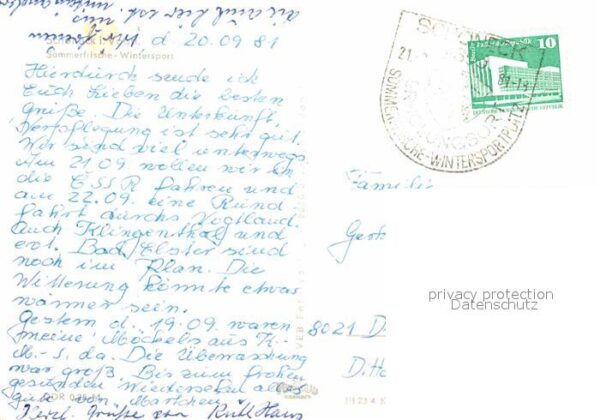 d. 20.09.81
Sommerfrische-Wintersport
Hierdurch sende ich
Euch Lieben die besten
Grüße. Die Unterkunft,
Verpflegung ist sehr gut.
Wir sind viel unterwegs
Am 21.09 wollen wir in
die ČSSR fahren und
am 22.09. eine Rund
fahrt durchs Vogtland.
Auch Klingenthal und
evt. Bad Elster sind
noch im Plan. Die
Witterung könnte etwas
wärmer sein.
Gestern d. 19.09. waren
meine Möckels aus K.-
M.-S. da. Die Überraschung
war groß. Bis zum frohen
gesunden Wiedersehn alles
Gute von
Herzl. Grüße von Ruth Hans
SCHÖNECK
SOMMERFRISCHE-WINTERSPORTPLATZ
10
Familie
8021 D
privacy protection
Datenschutz